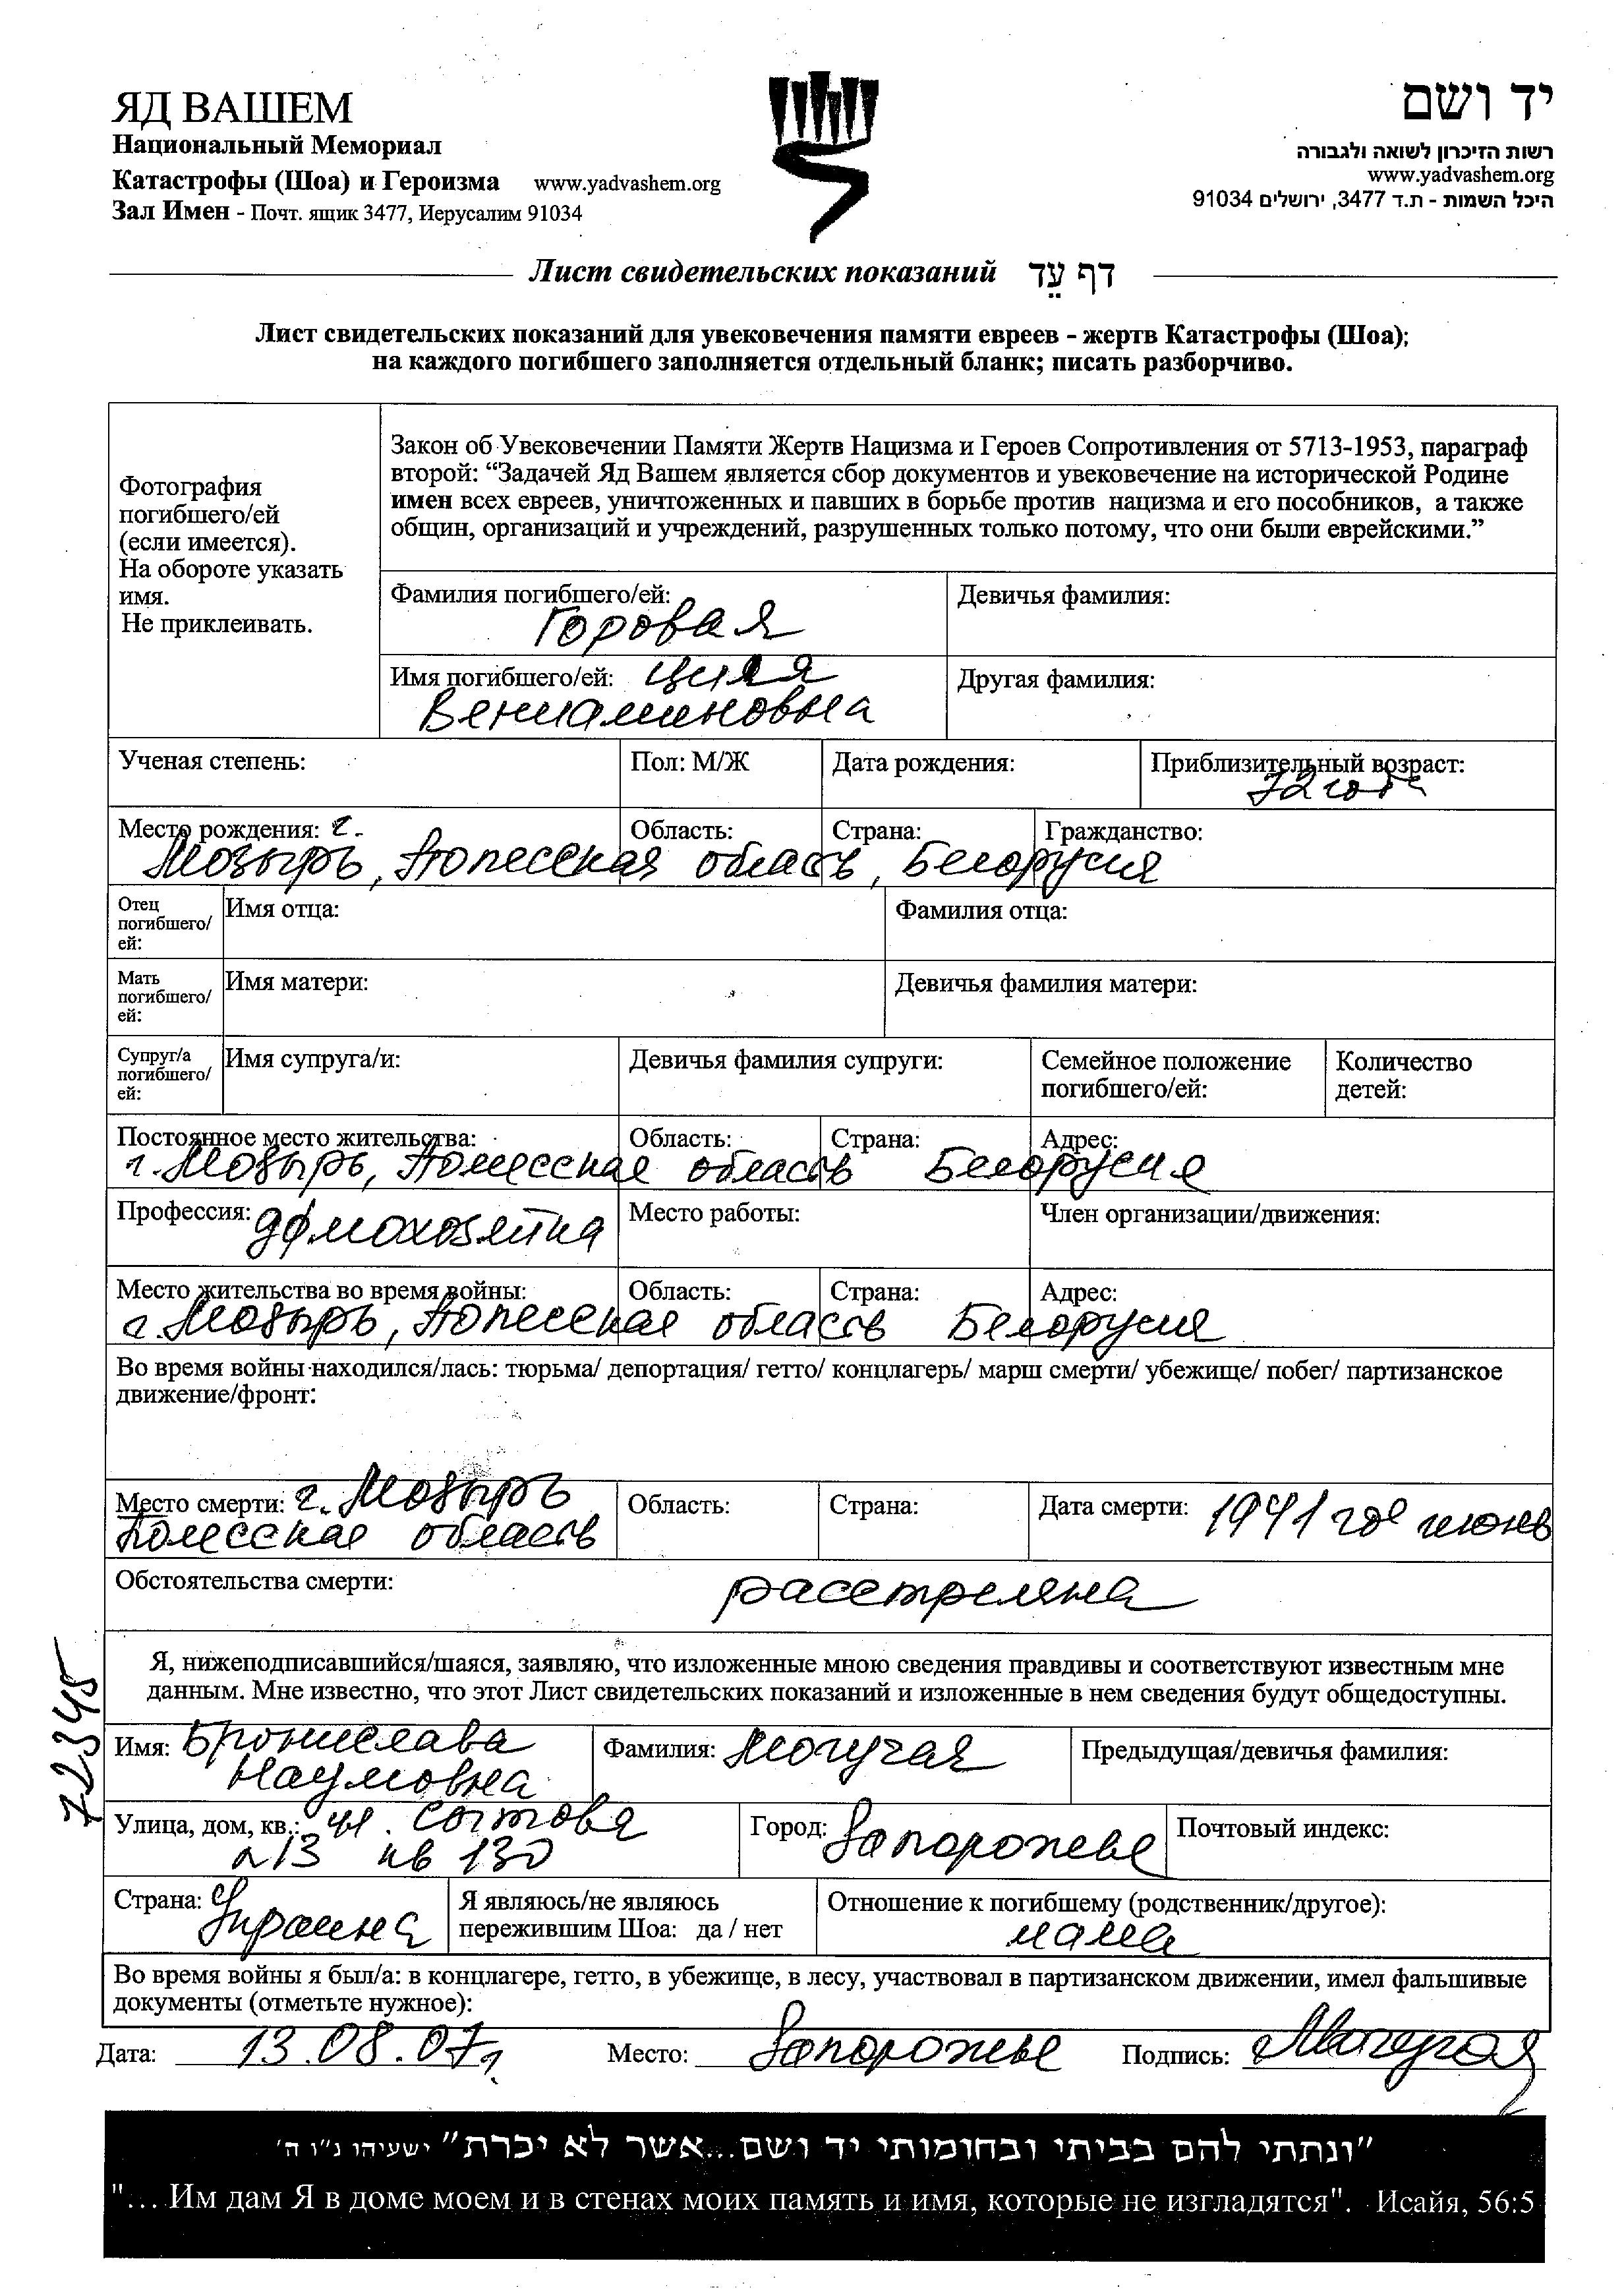 ЯД ВАШЕМ
Национальный Мемориал
Катастрофы (Шоа) и Героизма www.yadvashem.org
Зал Имен - Почт. ящик 3477, Иерусалим 91034
יד ושם
רשות הזיכרון לשואה ולגבורה
www.yadvashem.org
היכל השמות - ת.ד 3477, ירושלים 91034
Лист свидетельских показаний דף עֵד
Лист свидетельских показаний для увековечения памяти евреев - жертв Катастрофы (Шоа);
на каждого погибшего заполняется отдельный бланк; писать разборчиво.
Фотография
погибшего/ей
(если имеется).
На обороте указать
имя.
Не приклеивать.
Закон об Увековечении Памяти Жертв Нацизма и Героев Сопротивления от 5713-1953, параграф
второй: “Задачей Яд Вашем является сбор документов и увековечение на исторической Родине
имен всех евреев, уничтоженных и павших в борьбе против нацизма и его пособников, а также
общин, организаций и учреждений, разрушенных только потому, что они были еврейскими.”
Фамилия погибшего/ей: Девичья фамилия:
Горовая
Имя погибшего/ей: Циля Другая фамилия:
Вениаминовна
Ученая степень: Пол: М/Ж Дата рождения: Приблизительный возраст:
72 года
Место рождения: г. Область: Страна: Гражданство:
Мозырь, Полесская область, Белорусия
Отец
погибшего/
ей:
Имя отца: Фамилия отца:
Мать
погибшего/
ей:
Имя матери: Девичья фамилия матери:
Супруг/а
погибшего/
ей:
Имя супруга/и: Девичья фамилия супруги: Семейное положение
погибшего/ей:
Количество
детей:
Постоянное место жительства: Область: Страна: Адрес:
г. Мозырь, Полесская область Белорусия
Профессия: домохозяйка Место работы: Член организации/движения:
Место жительства во время войны: Область: Страна: Адрес:
г. Мозырь, Полесская область Белорусия
Во время войны находился/лась: тюрьма/ депортация/ гетто/ концлагерь/ марш смерти/ убежище/ побег/ партизанское
движение/фронт:
Место смерти: г. Мозырь Область: Страна: Дата смерти: 1941 год июнь
Полесская область
Обстоятельства смерти: расстреляна
Я, нижеподписавшийся/шаяся, заявляю, что изложенные мною сведения правдивы и соответствуют известным мне
данным. Мне известно, что этот Лист свидетельских показаний и изложенные в нем сведения будут общедоступны.
72345
Имя: Бронислава Фамилия: Могучая Предыдущая/девичья фамилия:
Наумовна
Улица, дом, кв.: ул. Сытова Город: Запорожье Почтовый индекс:
кв 130
Страна: Украина Я являюсь/не являюсь
пережившим Шоа: да / нет
Отношение к погибшему (родственник/другое):
мама
Во время войны я был/а: в концлагере, гетто, в убежище, в лесу, участвовал в партизанском движении, имел фальшивые
документы (отметьте нужное):
Дата: 13.08.07г. Место: Запорожье Подпись: Могучая
"ונתתי להם בביתי ובחומותי יד ושם...אשר לא יכרת" ישעיהו נ"ו ה'
"… Им дам Я в доме моем и в стенах моих память и имя, которые не изгладятся". Исайя, 56:5